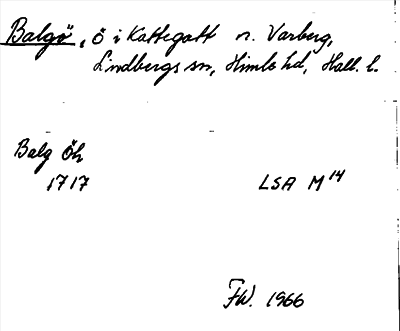 Balgö, ö i Kattegatt n. Varberg,
Lindbergs sn, Himle hd, Hall. l.
Balg Öh
1717 LSA M 14
FW. 1966